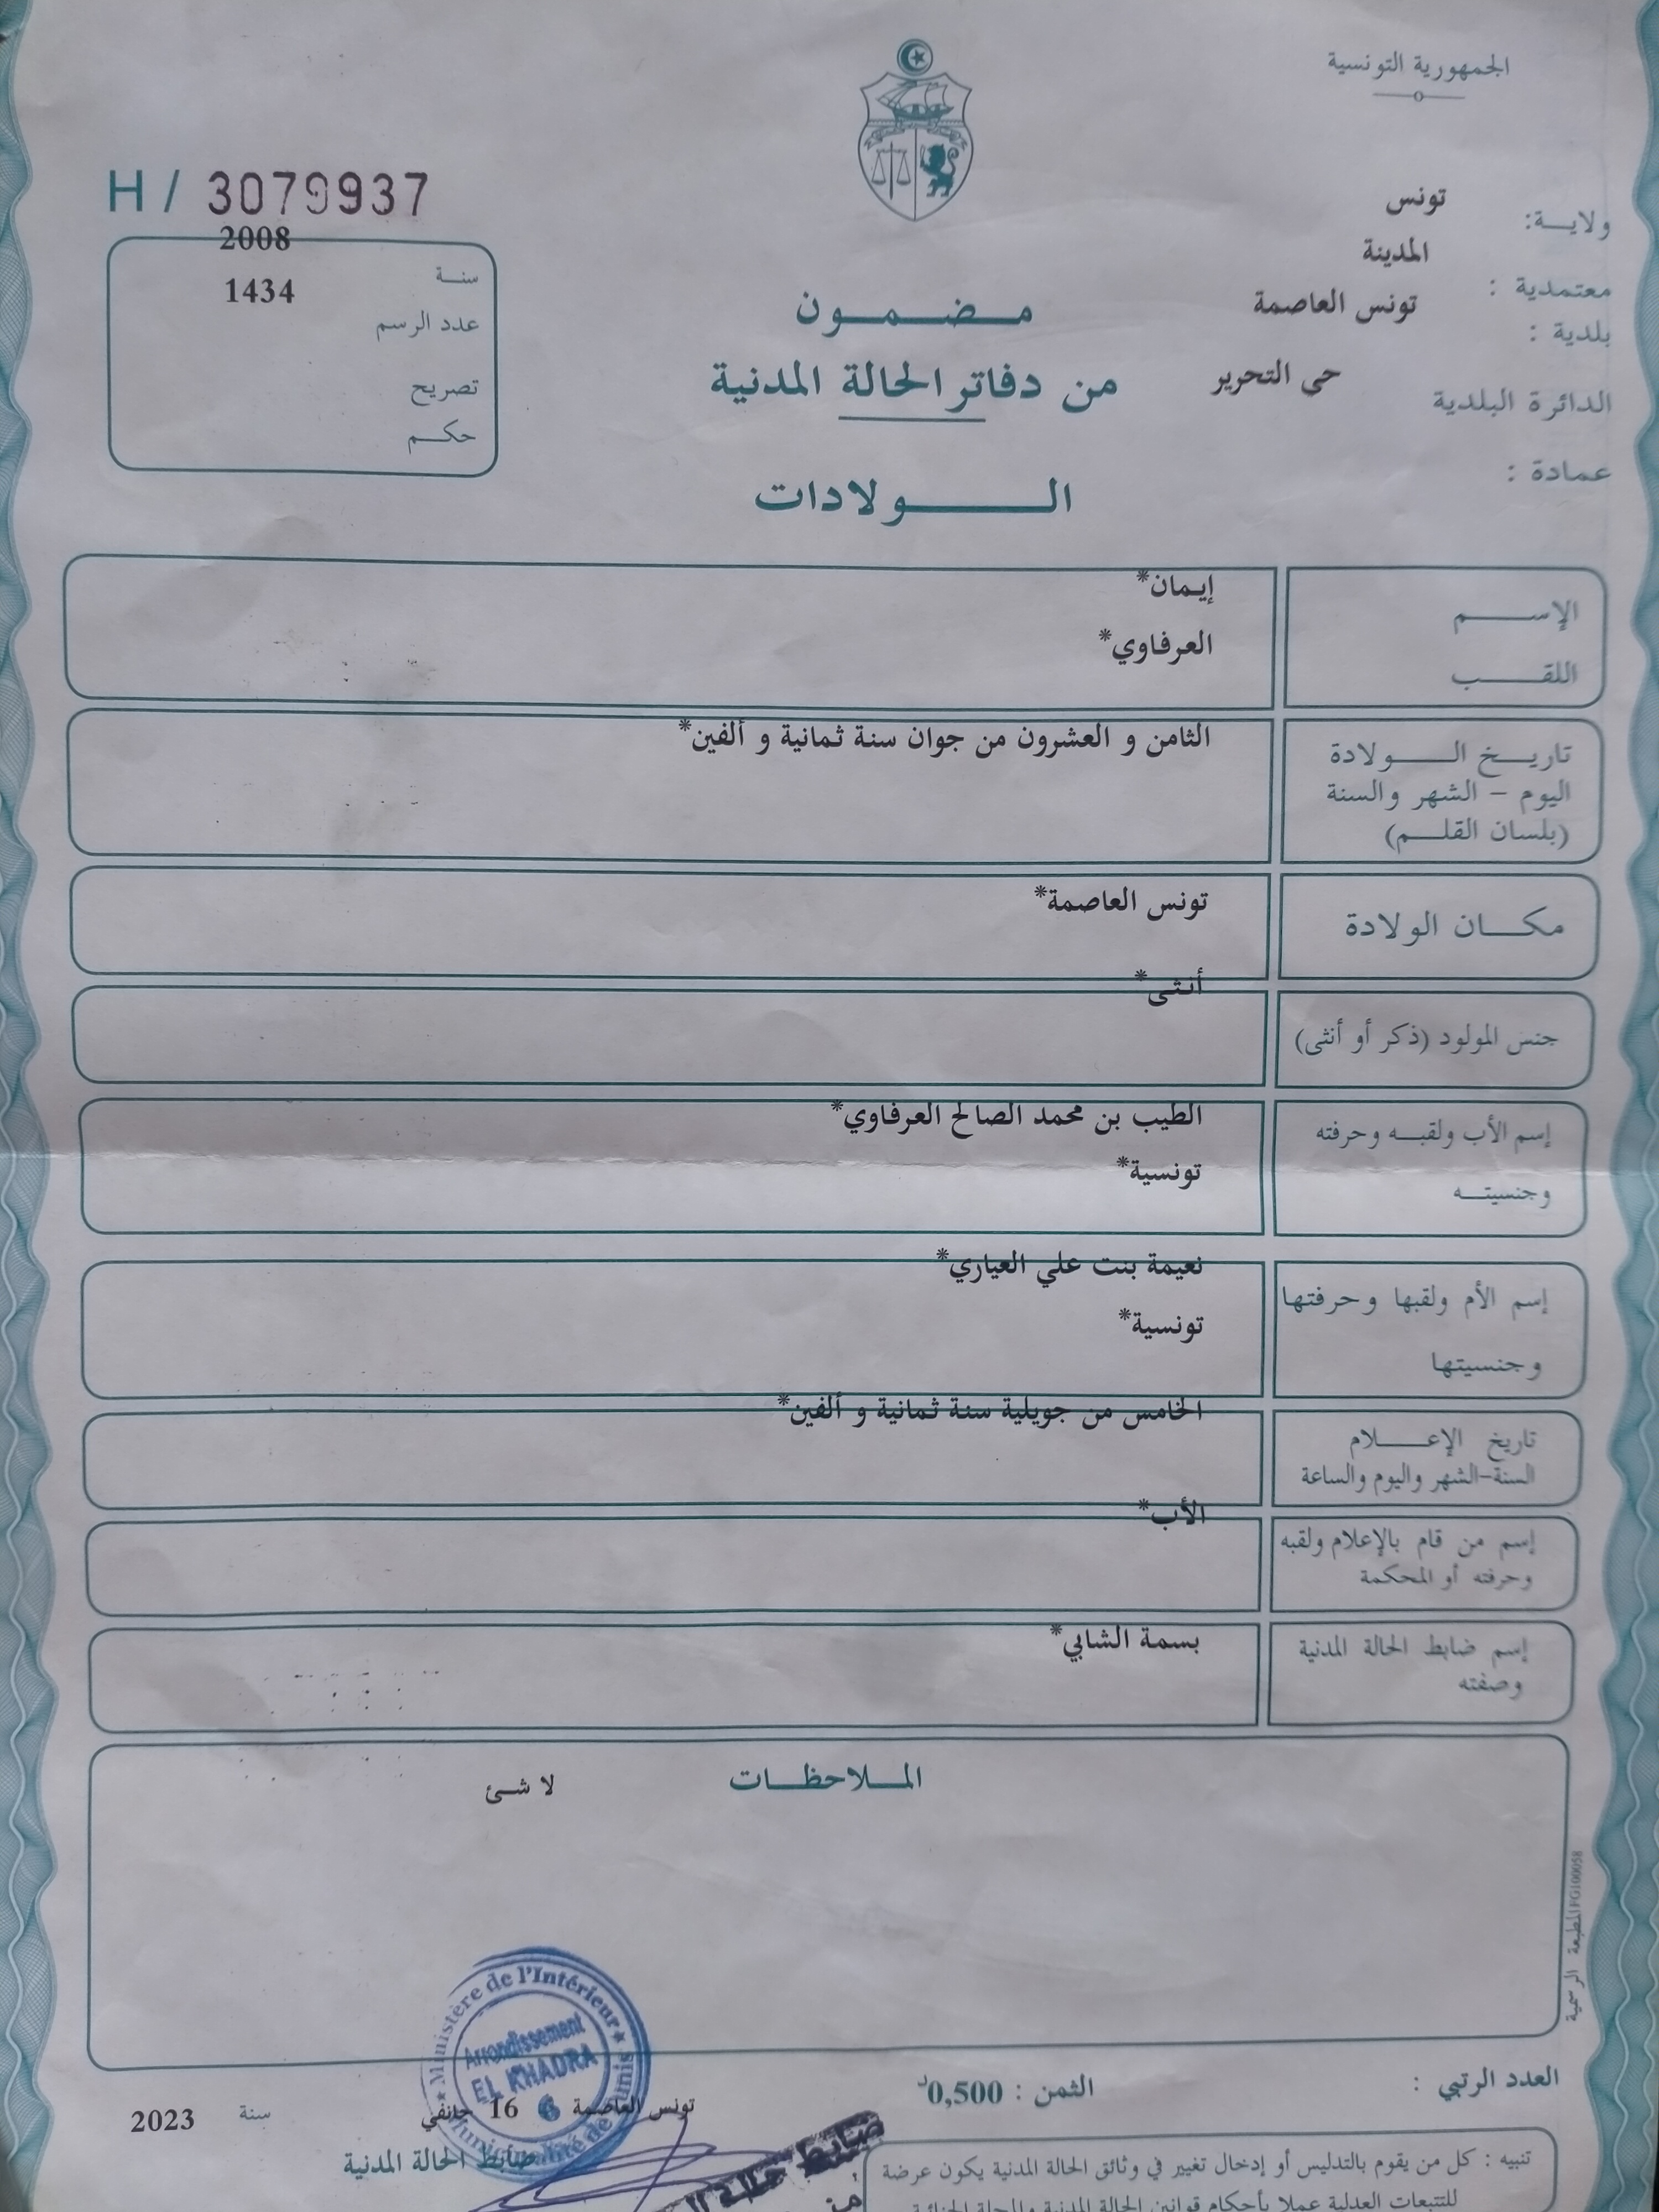 الجمهورية التونسية
ولايـــة: تونس
المدينة
معتمدية :
تونس العاصمة
بلدية :
الدائرة البلدية حى التحرير
عمادة :
H / 3079937
سنــة 2008
عدد الرسم 1434
تصريح
حكــم
مــضــمــون
من دفاتر الحالة المدنية
الــــولادات
الإســـم إيـمان*
اللقــــب العرفاوي*
تاريــخ الــــولادة الثامن و العشرون من جوان سنة ثمانية و ألفين*
اليوم – الشهر والسنة
(بلسان القلــم)
مكــــان الولادة تونس العاصمة*
جنس المولود (ذكر أو أنثى) أنـثـى*
إسم الأب ولقبــه وحرفته الطيب بن محمد الصالح العرفاوي*
وجنسيتــه تونسية*
إسم الأم ولقبها وحرفتها نعيمة بنت علي العياري*
وجنسيتها تونسية*
تاريخ الإعــــلام الخامس من جويلية سنة ثمانية و ألفين*
السنة-الشهر واليوم والساعة
إسم من قام بالإعلام ولقبه الأب*
وحرفته أو المحكمة
إسم ضابط الحالة المدنية بسمة الشابي*
وصفته
المــلاحظــات لا شئ
المطبعة الرسمية FG100058
Ministère de l'Intérieur
Arrondissement
EL KHADRA
Municipalité de Tunis
العدد الرتبي :
الثمن : 0,500د
تونس العاصمة 16 جانفي سنة 2023
ضابط الحالة المدنية
ضابط حالة
تنبيه : كل من يقوم بالتدليس أو إدخال تغيير في وثائق الحالة المدنية يكون عرضة
للتتبعات العدلية عملا بأحكام قوانين الحالة المدنية والمجلة الجنائية